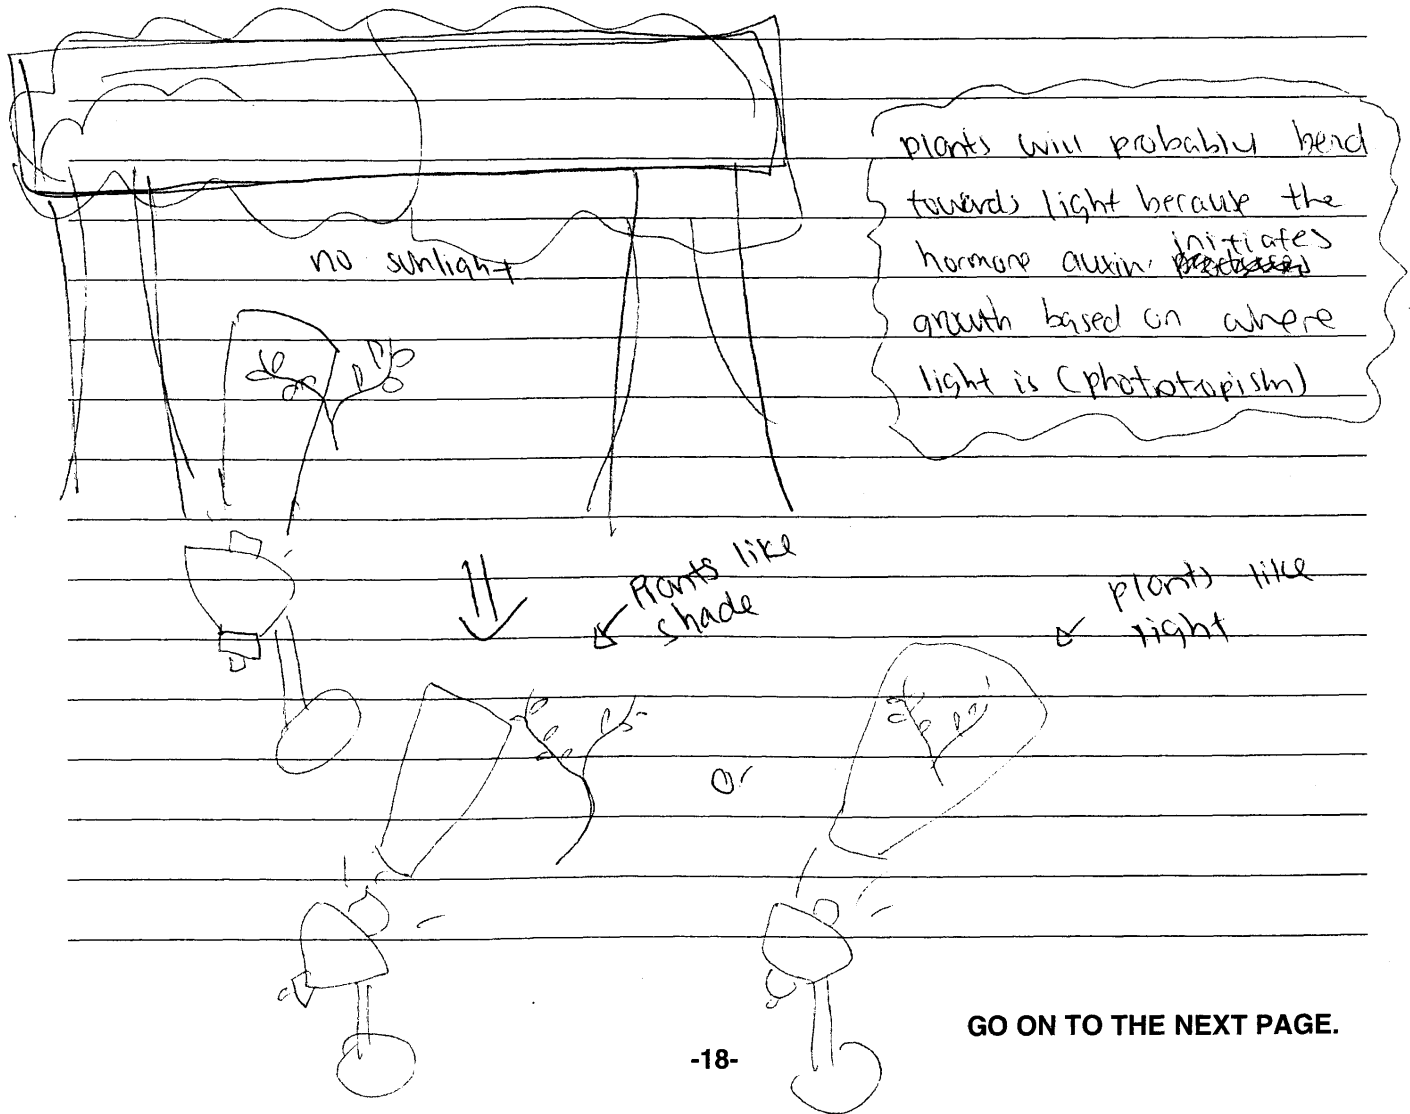 plants will probably bend
towards light because the
hormone auxin initiates
growth based on where
light is (phototropism)
no sunlight
Plants like
shade
plants like
light
or
GO ON TO THE NEXT PAGE.
-18-